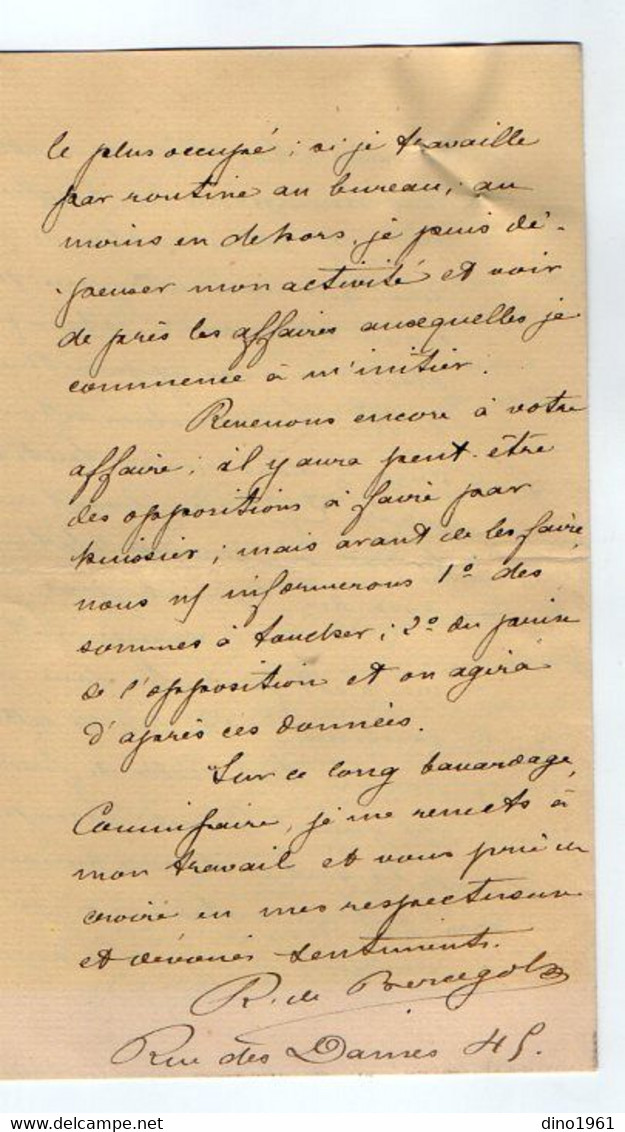 le plus occupé ; si je travaille
par routine au bureau, au
moins en dehors je puis dé-
penser mon activité et voir
de près les affaires auxquelles je
commence à m'initier.
Revenons encore à votre
affaire ; il y aura peut-être
des oppositions à faire par
huissier ; mais avant de les faire
nous n/ informerons 1º des
sommes à toucher ; 2º du prix
de l'opposition et on agira
d'après ces données.
Sur ce long bavardage,
Commissaire, je me remets à
mon travail et vous prie de
croire en mes respectueux
et dévoués sentiments.
R. de Bercegol
Rue des Dames 45.
dino1961